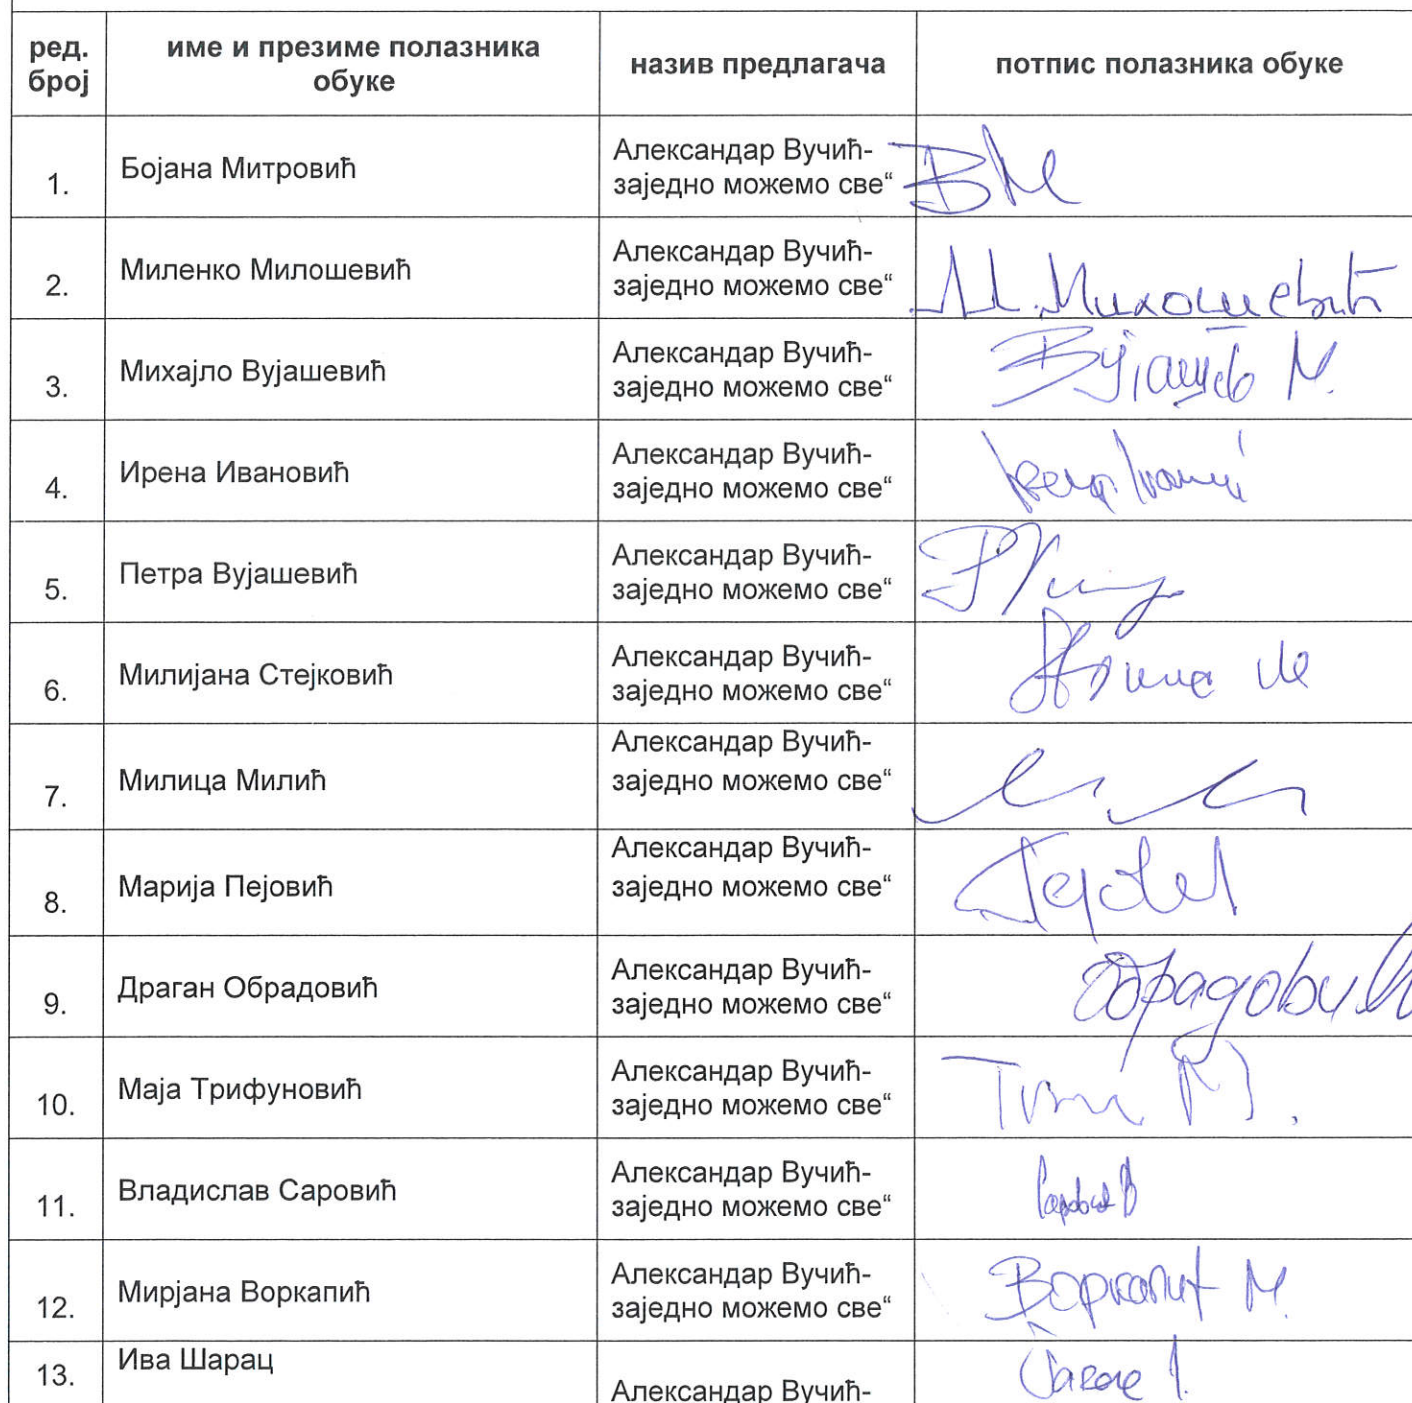 ред. број
име и презиме полазника обуке
назив предлагача
потпис полазника обуке
1.
Бојана Митровић
Александар Вучић-
заједно можемо све“
ВМ
2.
Миленко Милошевић
Александар Вучић-
заједно можемо све“
М. Милошевић
3.
Михајло Вујашевић
Александар Вучић-
заједно можемо све“
4.
Ирена Ивановић
Александар Вучић-
заједно можемо све“
5.
Петра Вујашевић
Александар Вучић-
заједно можемо све“
6.
Милијана Стејковић
Александар Вучић-
заједно можемо све“
7.
Милица Милић
Александар Вучић-
заједно можемо све“
8.
Марија Пејовић
Александар Вучић-
заједно можемо све“
9.
Драган Обрадовић
Александар Вучић-
заједно можемо све“
Обрадовић
10.
Маја Трифуновић
Александар Вучић-
заједно можемо све“
11.
Владислав Саровић
Александар Вучић-
заједно можемо све“
12.
Мирјана Воркапић
Александар Вучић-
заједно можемо све“
Воркапић М.
13.
Ива Шарац
Александар Вучић-